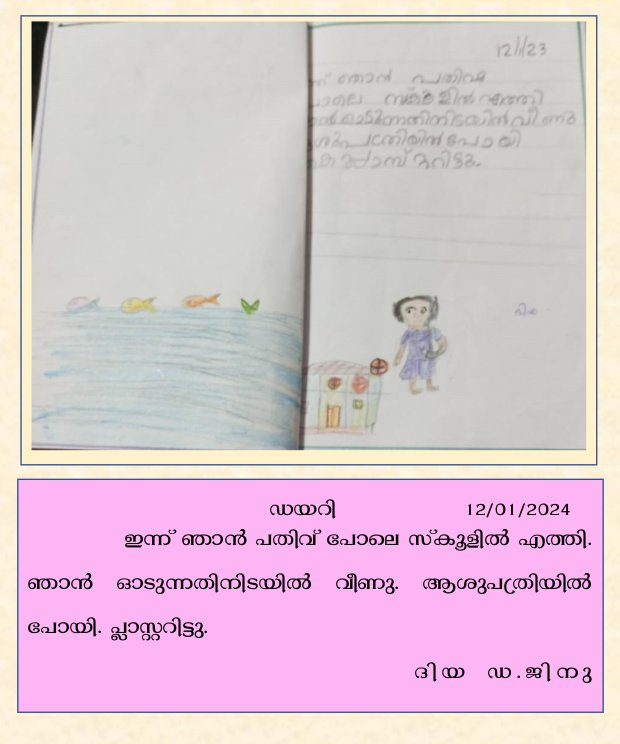 12/1/23
ന്ന് ഞാൻ പതിവു
പോലെ സ്കൂളിൽ എത്തി
ൻ ഓടുന്നതിനിടയിൽ വീണു
ശുപത്രിയിൽ പോയി
മുറിട്ടു.
ദിയ
ഡയറി 12/01/2024
ഇന്ന് ഞാൻ പതിവ് പോലെ സ്കൂളിൽ എത്തി.
ഞാൻ ഓടുന്നതിനിടയിൽ വീണു. ആശുപത്രിയിൽ
പോയി. പ്ലാസ്റ്ററിട്ടു.
ദിയ ഡ.ജിനു